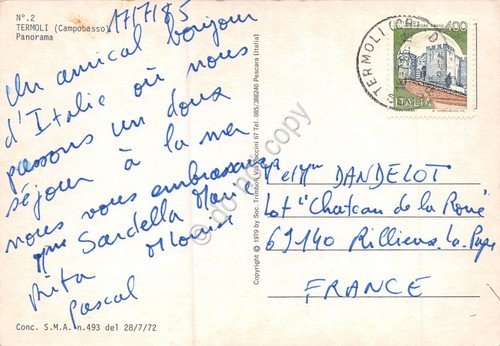 N°.2
TERMOLI (Campobasso)
Panorama
17/7/85
Un amical bonjour
d'Italie où nous
passons un doux
séjour à la mer
nous vous embrassons
Mme Sardella Marie
Rita
Pascal
Conc. S.M.A. n.493 del 28/7/72
Copyright © 1979 by Soc. Trimboli Via 67 Tel. 085/388240 Pescara (Italia)
TERMOLI
400
ITALIA
Mr et Mme DANDELOT
Lot "Chateau de la Roue"
69140 Rillieux-la-Pape
FRANCE